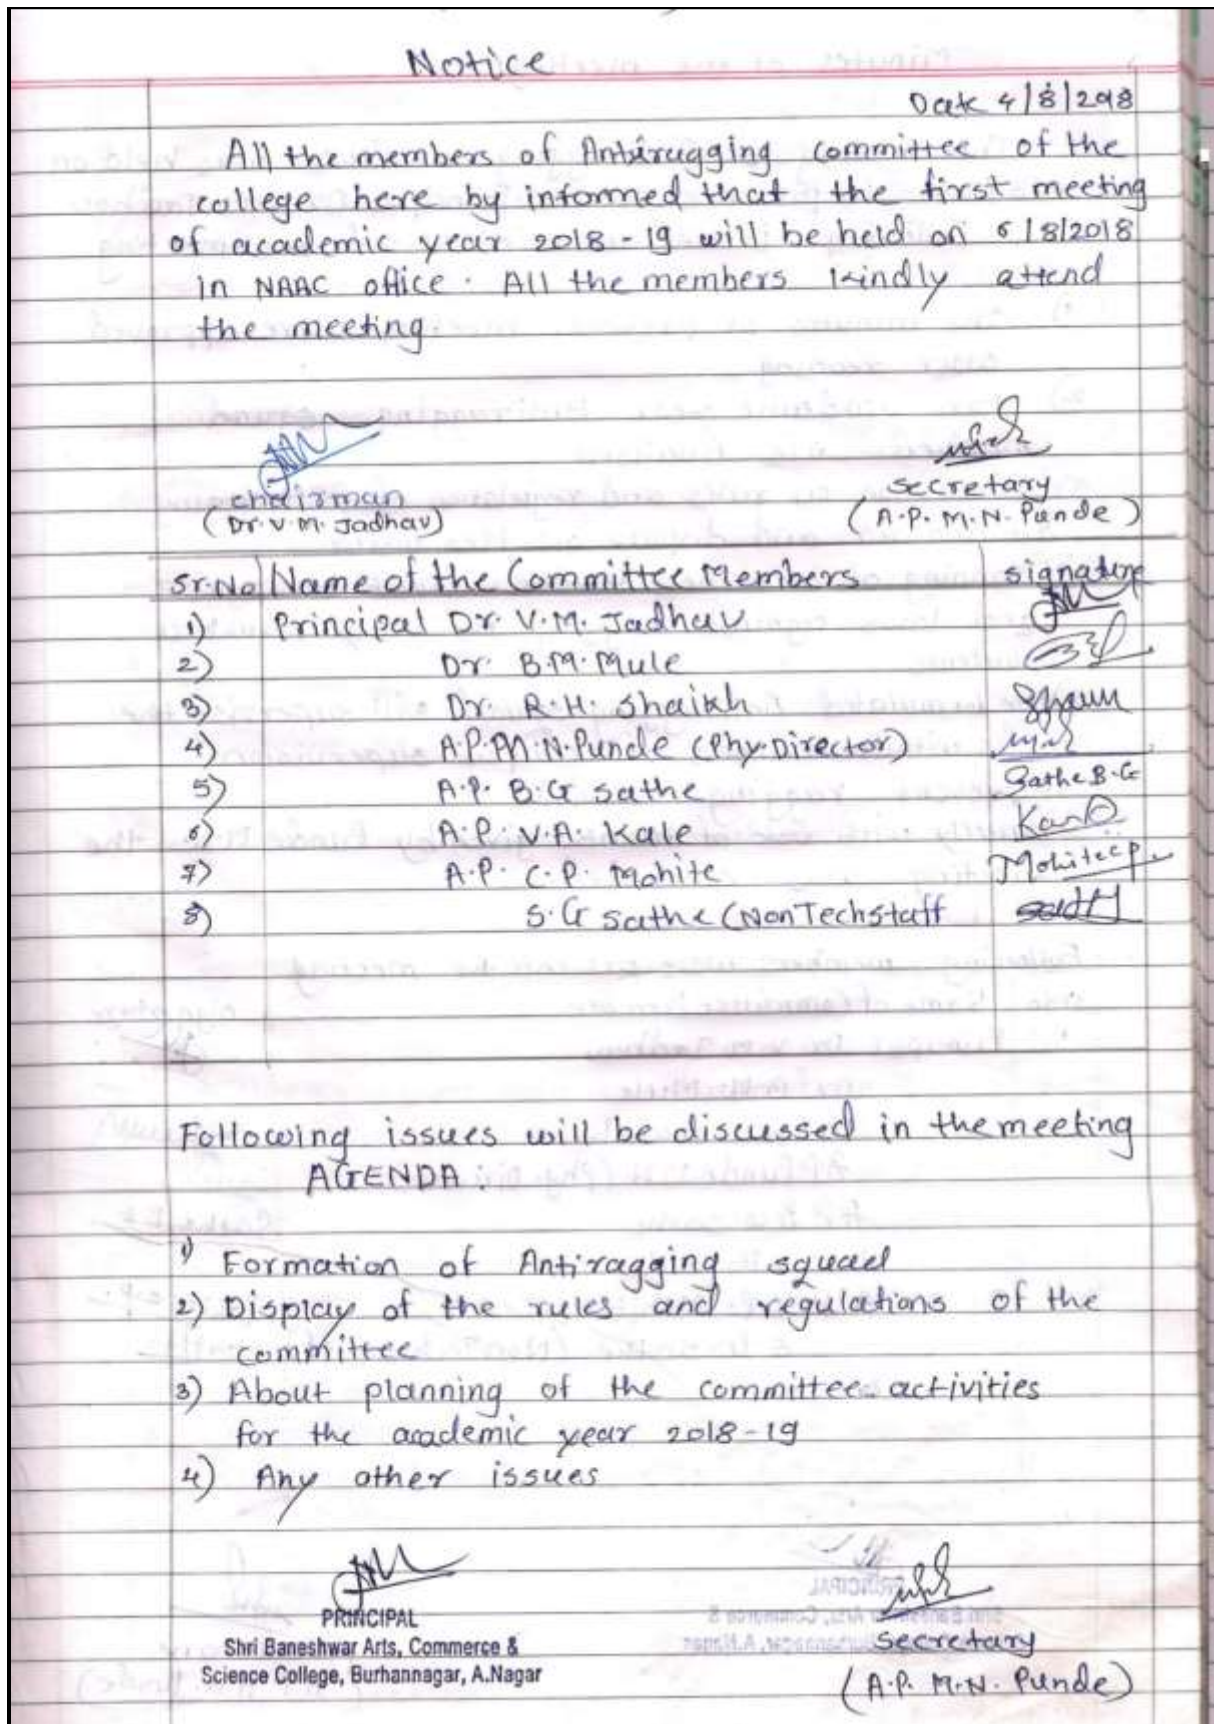 Notice
Date 4/8/2018
All the members of Antiragging committee of the
college here by informed that the first meeting
of academic year 2018-19 will be held on 6/8/2018
in NAAC office. All the members kindly attend
the meeting
chairman
(Dr. V. M. Jadhav)
secretary
(A.P. M.N. Punde)
Sr.No Name of the Committee Members signature
1) Principal Dr. V.M. Jadhav
2) Dr. B.M. Mule
3) Dr. R.H. Shaikh
4) A.P. M.N. Punde (Phy. Director)
5) A.P. B.G Sathe Sathe B.G
6) A.P. V.A. Kale
7) A.P. C.P. Mohite Mohite C P.
8) S.G Sathe (Non Techstaff
Following issues will be discussed in the meeting
AGENDA:
1) Formation of Antiragging squad
2) Display of the rules and regulations of the
committee
3) About planning of the committee activities
for the academic year 2018-19
4) Any other issues
PRINCIPAL
Shri Baneshwar Arts, Commerce &
Science College, Burhannagar, A.Nagar
secretary
(A.P. M.N. Punde)